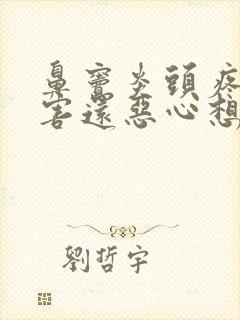 鼻竇炎頭疼
害還惡心想
劉哲宇